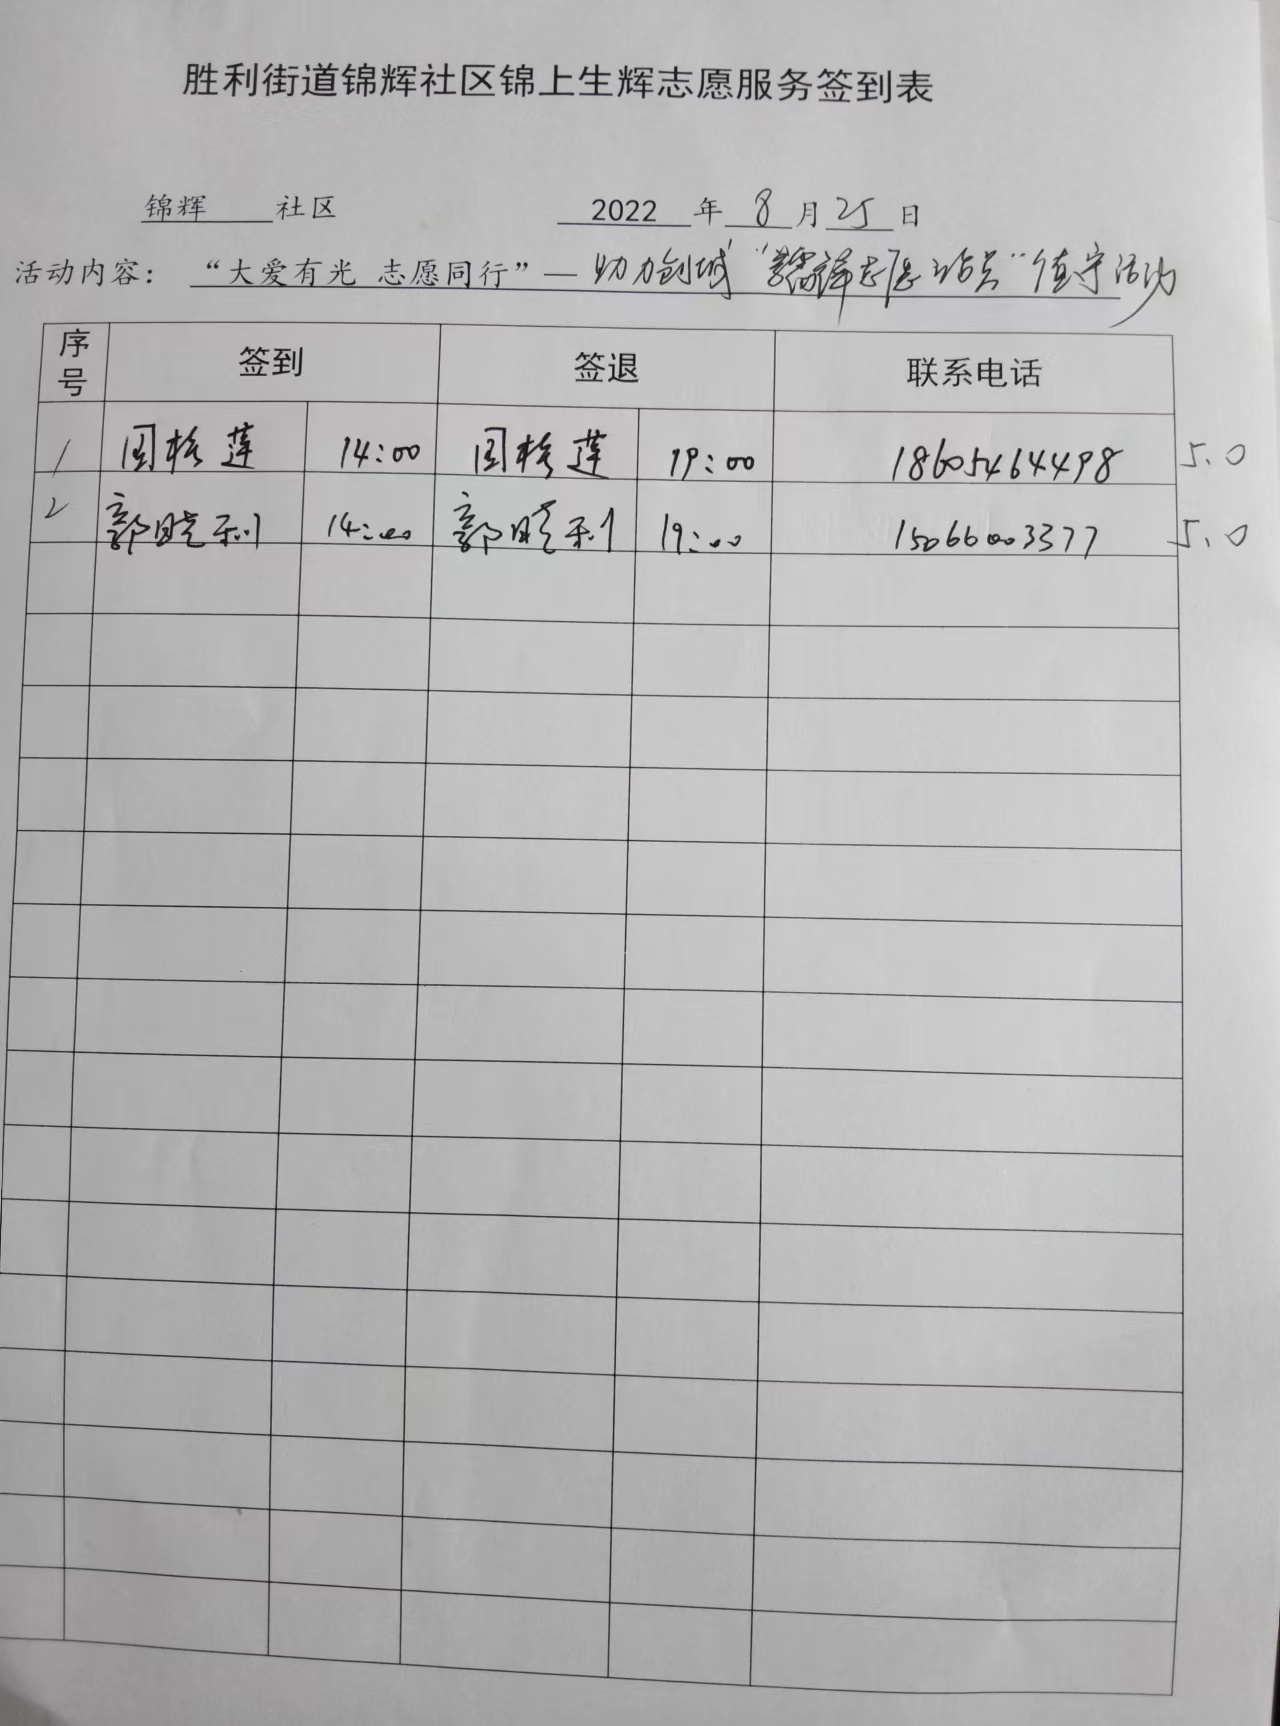 胜利街道锦辉社区锦上生辉志愿服务签到表
锦辉 社区 2022 年 8 月 25 日
活动内容： “大爱有光 志愿同行”— 助力创城 “ 志愿站点”值守活动
序号 签到 签退 联系电话
1 周 莲 14:00 周 莲 19:00 18605464498 5.0
2 郭晓利 14:00 郭晓利 19:00 15066003377 5.0